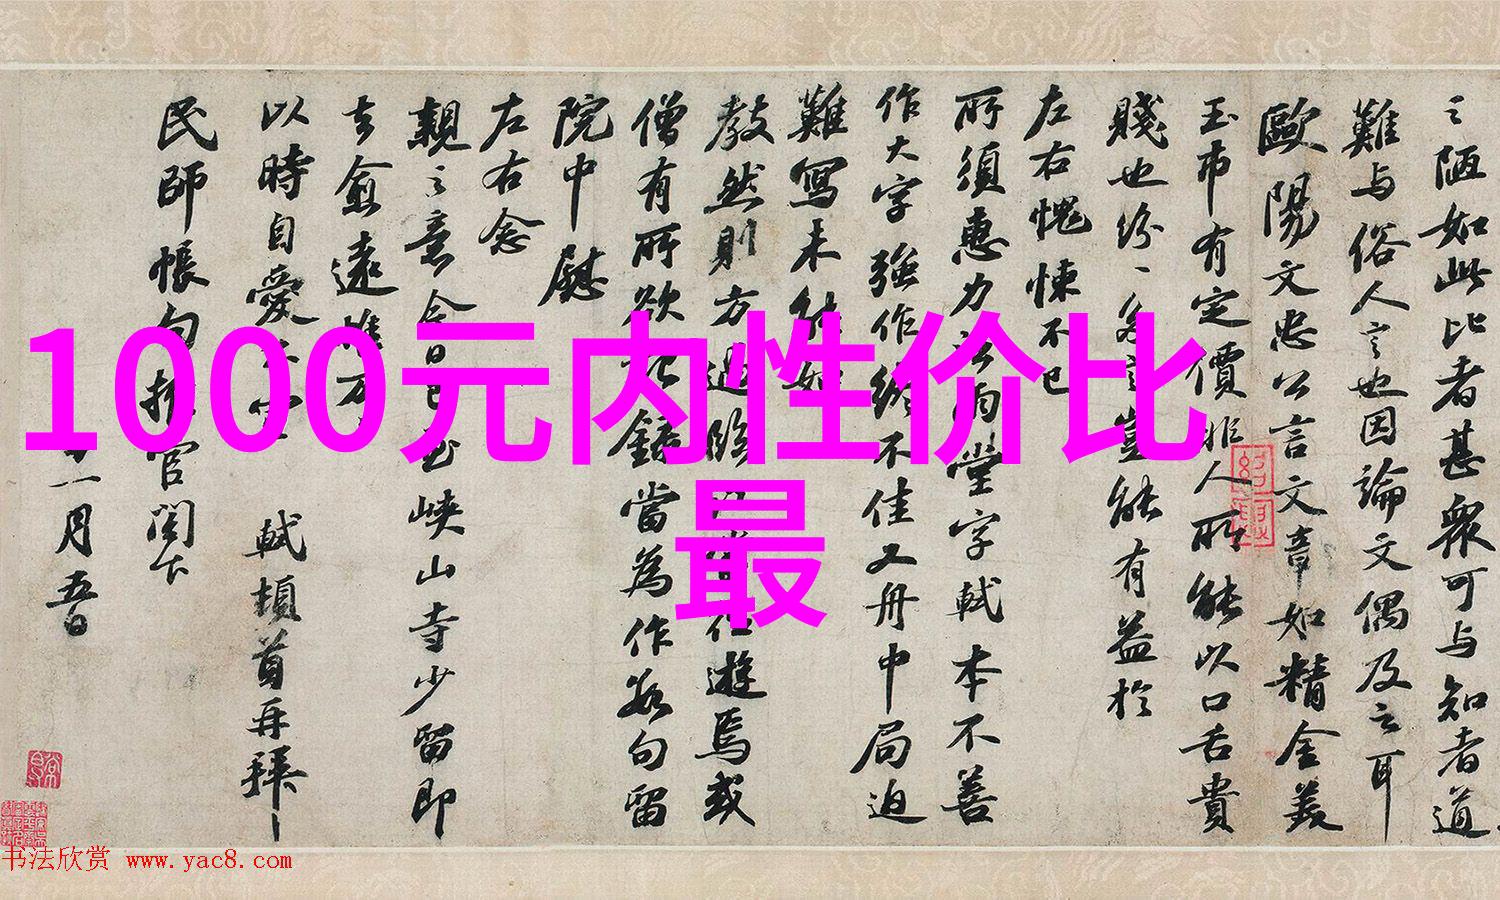 之陋如此比者甚衆可与知者道
難与俗人言也因論文偶及之耳
歐陽文忠公言文章如精金美
玉市有定價非人所能以口舌貴
賤也紛〻多言豈能有益於
左右愧悚不已
所須惠力法雨堂字軾本不善
作大字強作終不佳又舟中局迫
難寫未能如
教然則方過臨遊焉或
僧有所欲記錄當為作數句留
院中慰
左右念
親之意今日已至峽山寺少留即
去愈遠惟万
以時自愛不宣 軾頓首再拜
民師帳句推官閣下
一月五日
1000元内性价比
最
书法欣赏 www.yac8.com